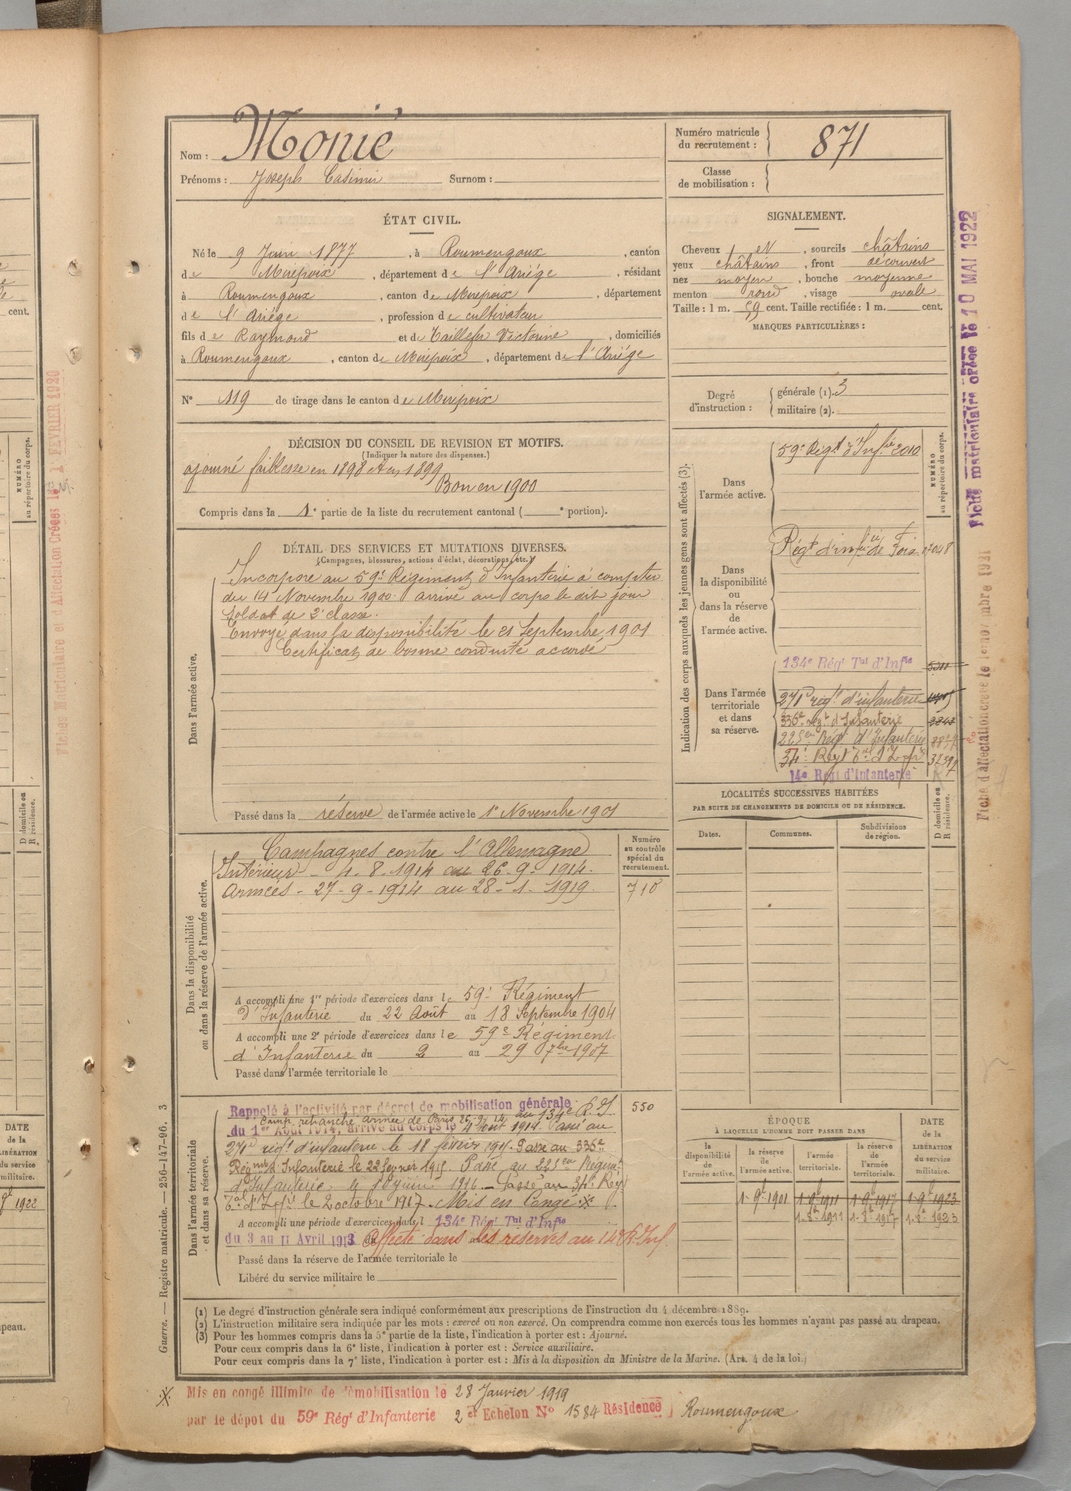 Nom : Monié
Prénoms : Joseph Casimir Surnom :
Numéro matricule du recrutement : 871
Classe de mobilisation :
ÉTAT CIVIL.
Né le 9 Juin 1877, à Roumengoux, canton
de Mirepoix, département de l'Ariège, résidant
à Roumengoux, canton de Mirepoix, département
de l'Ariège, profession de cultivateur
fils de Raymond et de Taillefer Victorine, domiciliés
à Roumengoux, canton de Mirepoix, département de l'Ariége
N° 119 de tirage dans le canton de Mirepoix
SIGNALEMENT.
Cheveux et, sourcils châtains
yeux châtains, front découvert
nez moyen, bouche moyenne
menton rond, visage ovale
Taille : 1 m. 59 cent. Taille rectifiée : 1 m. cent.
MARQUES PARTICULIÈRES :
Degré d'instruction : générale (1). 3
militaire (2).
DÉCISION DU CONSEIL DE REVISION ET MOTIFS.
(Indiquer la nature des dispenses.)
ajourné faiblesse en 1898 et en 1899
Bon en 1900
Compris dans la 1e partie de la liste du recrutement cantonal ( e portion).
DÉTAIL DES SERVICES ET MUTATIONS DIVERSES.
(Campagnes, blessures, actions d'éclat, décorations, etc.)
Dans l'armée active.
Incorporé au 59e Régiment d'Infanterie à compter
du 14 Novembre 1900. arrivé au corps le dit jour
Soldat de 2e classe.
Envoyé dans la disponibilité le 21 Septembre 1901
Certificat de bonne conduite accordé
Passé dans la réserve de l'armée active le 1er Novembre 1901
Indication des corps auxquels les jeunes gens sont affectés (3).
NUMÉRO au répertoire du corps.
Dans l'armée active.
59e Régt d'Infie 2010
Dans la disponibilité ou dans la réserve de l'armée active.
Régt d'infie de Foix
Dans l'armée territoriale et dans sa réserve.
134e Régt Tal d'Infie
271e régt d'infanterie
336e régt d'Infanterie
225em Régt d'Infanterie
34e Régt
14e Régt d'Infanterie
LOCALITÉS SUCCESSIVES HABITÉES
PAR SUITE DE CHANGEMENTS DE DOMICILE OU DE RÉSIDENCE.
Dates. Communes. Subdivisions de région. D domicile ou R résidence.
Dans la disponibilité ou dans la réserve de l'armée active.
Numéro au contrôle spécial du recrutement.
710
Campagnes contre l'Allemagne
Intérieur - 4. 8. 1914 au 26. 9. 1914.
Armées - 27 - 9 - 1914 au 28 - 1 - 1919.
A accompli une 1re période d'exercices dans le 59e Régiment
d'Infanterie du 22 Août au 18 Septembre 1904
A accompli une 2e période d'exercices dans le 59e Régiment
d'Infanterie du 2 au 29 7bre 1907
Passé dans l'armée territoriale le
Dans l'armée territoriale et dans sa réserve.
550
Rappelé à l'activité par décret de mobilisation générale
Camp retranché Armée de Paris 26.9.14 au 134e R.I
du 1er Août 1914, arrivé au corps le 4 Août 1914. Passé au
271e régt d'infanterie le 18 février 1915. Passé au 336e
Régiment d'Infanterie le 22 février 1915. Passé au 225em Régiment
d'Infanterie. 4 1916. - Passé au 34e Régt
le 2 octobre 1917. Mis en Congé ※
A accompli une période d'exercices dans l 134e Régt Tal d'Infie
du 3 au 11 Avril 1913 affecté dans les réserves au 14e R. Inf.
Passé dans la réserve de l'armée territoriale le
Libéré du service militaire le
ÉPOQUE
À LAQUELLE L'HOMME DOIT PASSER DANS
la disponibilité de l'armée active. la réserve de l'armée active. l'armée territoriale. la réserve de l'armée territoriale. DATE de la LIBÉRATION du service militaire.
1. 9bre 1901 1. 9bre 1911 1. 9bre 1917 1. 9bre 1923
(1) Le degré d'instruction générale sera indiqué conformément aux prescriptions de l'instruction du 4 décembre 1889.
(2) L'instruction militaire sera indiquée par les mots : exercé ou non exercé. On comprendra comme non exercés tous les hommes n'ayant pas passé au drapeau.
(3) Pour les hommes compris dans la 5e partie de la liste, l'indication à porter est : Ajourné.
Pour ceux compris dans la 6e liste, l'indication à porter est : Service auxiliaire.
Pour ceux compris dans la 7e liste, l'indication à porter est : Mis à la disposition du Ministre de la Marine. (Art. 4 de la loi.)
※ Mis en congé illimité de démobilisation le 28 Janvier 1919
par le dépot du 59e Régt d'Infanterie 2 e Echelon N° 1584 Résidence Roumengoux
Guerre. — Registre matricule. — 256-147-96. 3
Fiche matriculaire créée le 10 MAI 1922
Fiche d'affectation créée le 1er novembre 1921
Fiches Matriculaire et d'Affectation Créées le 1 FÉVRIER 1920
cent.
NUMÉRO au répertoire du corps.
D domicile ou R résidence.
DATE de la LIBÉRATION du service militaire.
1922